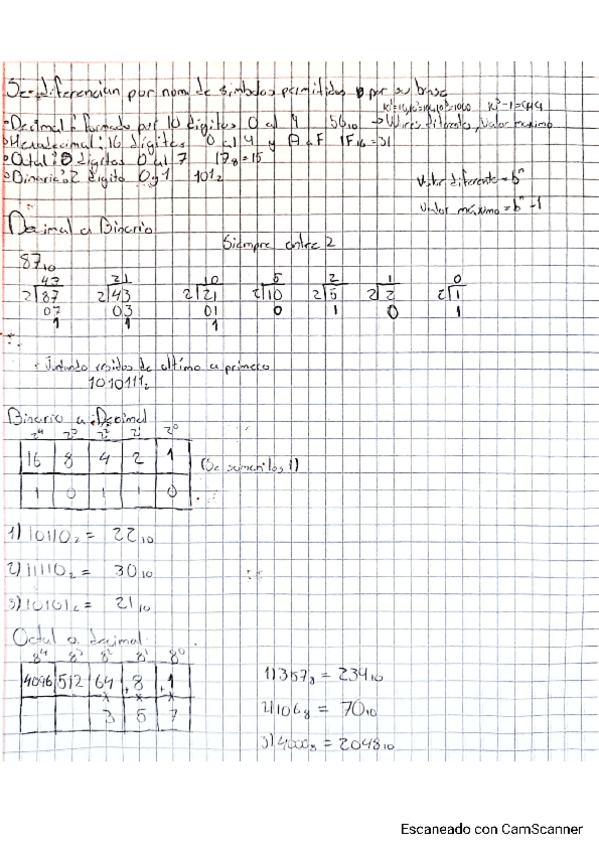 Se diferencian por num de simbolos permitidos o por su base
Decimal: formado por 10 digitos 0 al 9 5610 → Valores diferente, Valor maximo
Hexadecimal: 16 digitos 0 al 9 y A a F 1F16=31
Octal: 8 digitos 0 al 7 178=15
Binario: 2 digito 0 y 1 1012
Valor diferente = b^n
Valor máximo = b^n-1
Decimal a Binario
Siempre entre 2
8710
43 21 10 5 2 1 0
2|87 2|43 2|21 2|10 2|5 2|2 2|1
07 03 01 0 1 0 1
1 1 1
Juntando residos de ultimo a primero
10101112
Binario a Decimal
2^4 2^3 2^2 2^1 2^0
16 8 4 2 1
(Se suman los 1)
1 0 1 1 0
1) 101102 = 2210
2) 111102 = 3010
3) 101012 = 2110
Octal a decimal
8^4 8^3 8^2 8^1 8^0
4096 512 64 8 1
3 5 7
1) 3578 = 23910
2) 1068 = 7010
3) 40008 = 204810
Escaneado con CamScanner